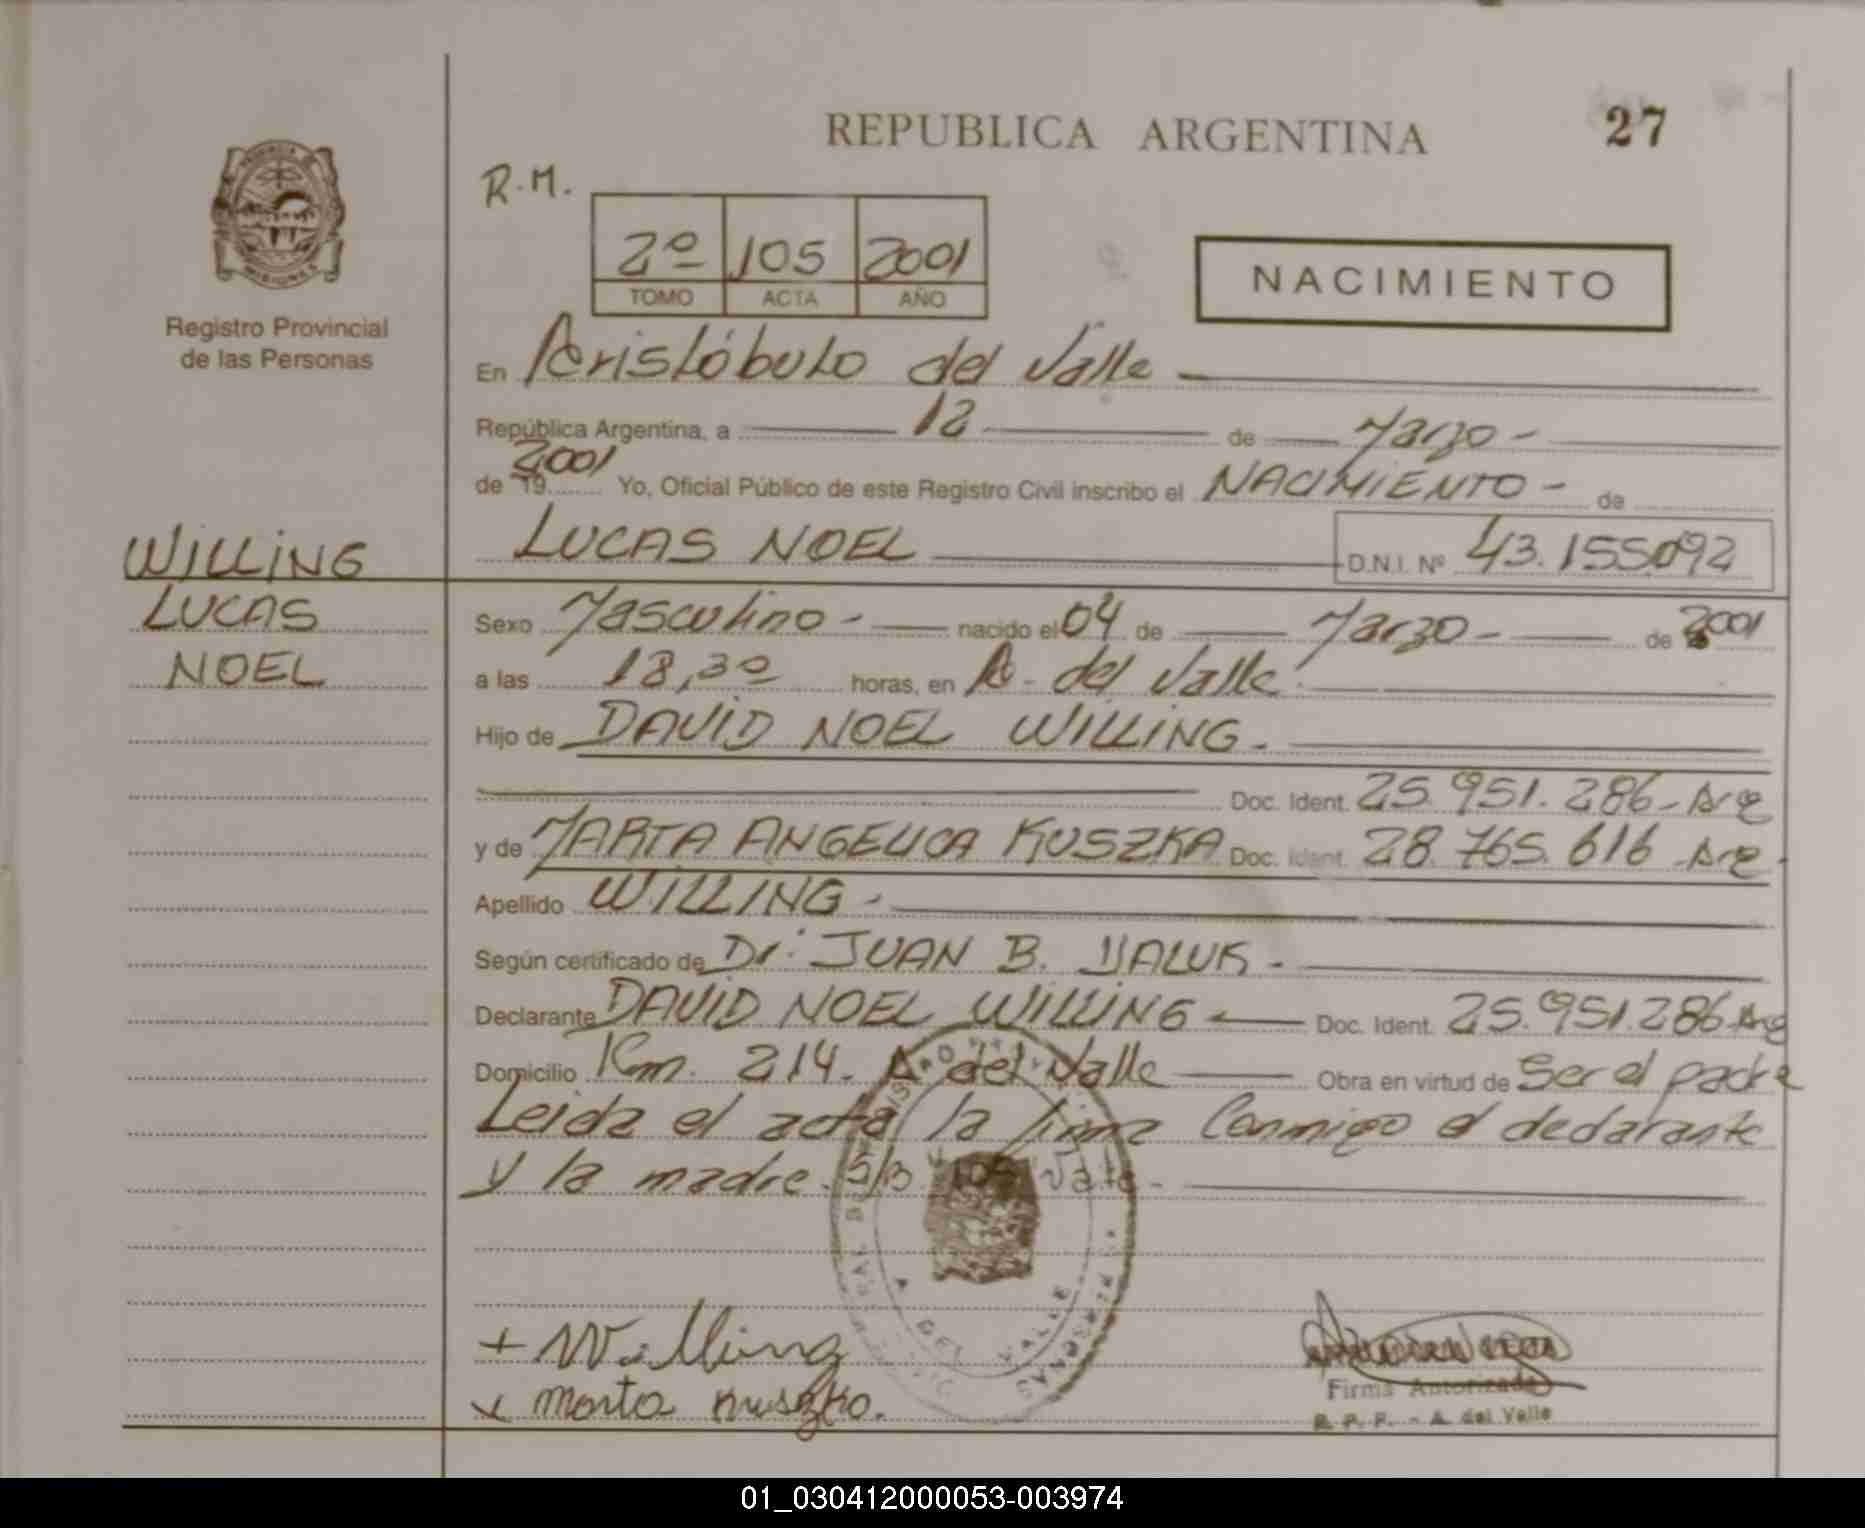 REPUBLICA ARGENTINA
27
PROVINCIA DE
MISIONES
Registro Provincial
de las Personas
R.M.
2º 105 2001
TOMO ACTA AÑO
NACIMIENTO
En Aristóbulo del Valle
República Argentina, a 12 de Marzo -
de 19 2001 Yo, Oficial Público de este Registro Civil inscribo el NACIMIENTO - de
LUCAS NOEL D.N.I. Nº 43.155092
WILLING
LUCAS
NOEL
Sexo Masculino - nacido el 04 de Marzo - de 2001
a las 18,30 horas, en A. del Valle
Hijo de DAVID NOEL WILLING -
Doc. Ident. 25.951.286 - Arg
y de MARTA ANGELICA KUSZKA Doc. Ident. 28.765.616 - Arg
Apellido WILLING -
Según certificado de Dr. JUAN B. YALUK -
Declarante DAVID NOEL WILLING - Doc. Ident. 25.951.286 Arg
Domicilio Km. 214. A del Valle Obra en virtud de Ser el padre
Leida el acta la firma Conmigo el declarante
y la madre. S/B "105" Vale -
+ W. lling
x marta kuszka.
Firma Autorizada
R. P. P. - A. del Valle
A. DEL VALLE
01_030412000053-003974